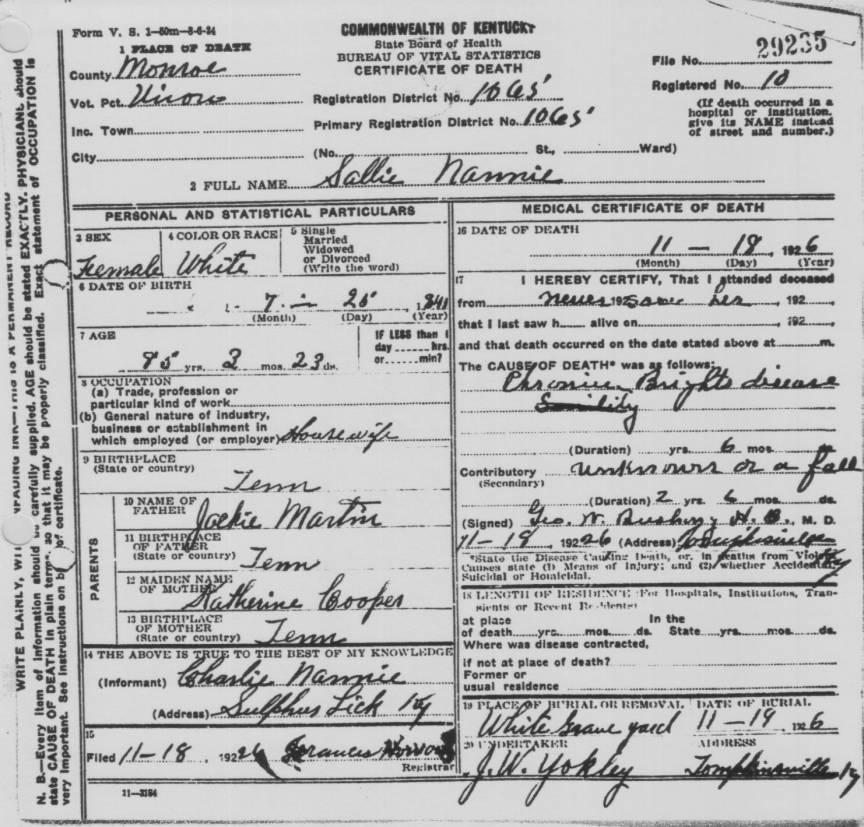 Form V. S. 1-50m-8-6-24
COMMONWEALTH OF KENTUCKY
State Board of Health
BUREAU OF VITAL STATISTICS
CERTIFICATE OF DEATH
File No. 29235
Registered No. 10
(If death occurred in a
hospital or institution,
give its NAME instead
of street and number.)
1 PLACE OF DEATH
County Monroe
Vot. Pct. Union
Inc. Town
City
Registration District No. 1065
Primary Registration District No. 1065
(No. St., Ward)
2 FULL NAME Sallie Nannie
PERSONAL AND STATISTICAL PARTICULARS
3 SEX
Female
4 COLOR OR RACE
White
5 Single
Married
Widowed
or Divorced
(Write the word)
6 DATE OF BIRTH
7 - 25 1841
(Month) (Day) (Year)
7 AGE
85 yrs. 3 mos. 23 ds.
IF LESS than 1
day hrs.
or min?
8 OCCUPATION
(a) Trade, profession or
particular kind of work
(b) General nature of industry,
business or establishment in
which employed (or employer) Housewife
9 BIRTHPLACE
(State or country)
Tenn
PARENTS
10 NAME OF
FATHER
Jackie Martin
11 BIRTHPLACE
OF FATHER
(State or country)
Tenn
12 MAIDEN NAME
OF MOTHER
Katherine Cooper
13 BIRTHPLACE
OF MOTHER
(State or country)
Tenn
14 THE ABOVE IS TRUE TO THE BEST OF MY KNOWLEDGE
(Informant) Charlie Nannie
(Address) Sulphur Lick Ky
15
Filed 11-18, 1926 Frances
Registrar
11-3184
MEDICAL CERTIFICATE OF DEATH
16 DATE OF DEATH
11 - 18, 1926
(Month) (Day) (Year)
17 I HEREBY CERTIFY, That I attended deceased
from never 192 saw her, 192
that I last saw h alive on, 192
and that death occurred on the date stated above at m.
The CAUSE OF DEATH* was as follows:
Brights disease
(Duration) yrs. 6 mos.
Contributory unknown or a fall
(Secondary)
(Duration) 2 yrs. 6 mos. ds.
(Signed) Geo. W. Bushong, M. D.
11-18 1926 (Address)
*State the Disease Causing Death, or, in deaths from Violent
Causes state (1) Means of Injury; and (2) whether Accidental,
Suicidal or Homicidal.
18 LENGTH OF RESIDENCE (For Hospitals, Institutions, Tran-
sients or Recent Residents)
at place In the
of death yrs. mos. ds. State yrs. mos. ds.
Where was disease contracted,
if not at place of death?
Former or
usual residence
19 PLACE OF BURIAL OR REMOVAL
White Grave yard
DATE OF BURIAL
11-19 1926
20 UNDERTAKER
J. W. Yokley
ADDRESS
Tompkinsville Ky
N. B.—Every item of information should be carefully supplied. AGE should be stated EXACTLY. PHYSICIANS should
state CAUSE OF DEATH in plain terms, so that it may be properly classified. Exact statement of OCCUPATION is
very important. See instructions on back of certificate.